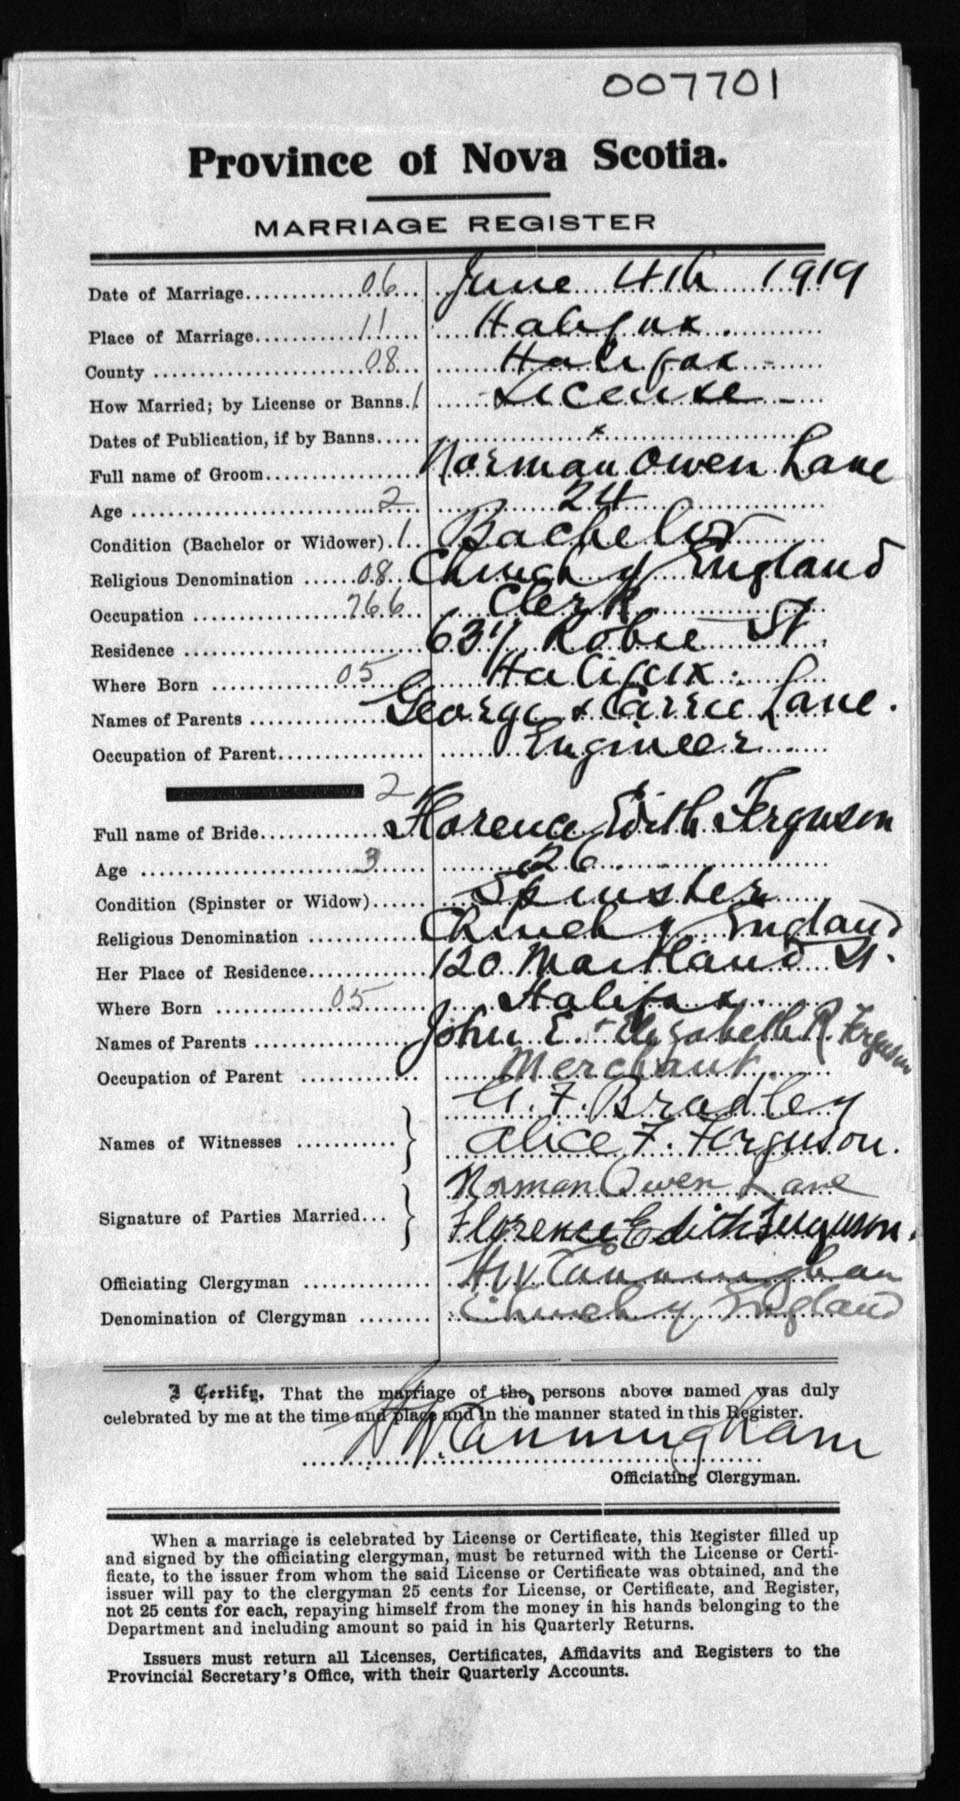 007701
Province of Nova Scotia.
MARRIAGE REGISTER
Date of Marriage 06 June 4th 1919
Place of Marriage 11 Halifax.
County 08 Halifax
How Married; by License or Banns 1 License
Dates of Publication, if by Banns x
Full name of Groom Norman Owen Lane
Age 2 24
Condition (Bachelor or Widower) 1 Bachelor
Religious Denomination 08 Church of England
Occupation 766 Clerk
Residence Robie St.
Where Born 05 Halifax.
Names of Parents George & Carrie Lane.
Occupation of Parent Engineer
2
Full name of Bride Florence Edith Ferguson
Age 3 26
Condition (Spinster or Widow) Spinster
Religious Denomination Church of England
Her Place of Residence 120 Maitland St.
Where Born 05 Halifax.
Names of Parents John E. + Elizabeth R. Ferguson
Occupation of Parent Merchant
Names of Witnesses F. Bradley
Alice F. Ferguson.
Signature of Parties Married Norman Owen Lane
Florence Edith Ferguson.
Officiating Clergyman H W Cunningham
Denomination of Clergyman Church of England
I Certify, That the marriage of the persons above named was duly
celebrated by me at the time and place and in the manner stated in this Register.
H W Cunningham
Officiating Clergyman.
When a marriage is celebrated by License or Certificate, this Register filled up
and signed by the officiating clergyman, must be returned with the License or Certi-
ficate, to the issuer from whom the said License or Certificate was obtained, and the
issuer will pay to the clergyman 25 cents for License, or Certificate, and Register,
not 25 cents for each, repaying himself from the money in his hands belonging to the
Department and including amount so paid in his Quarterly Returns.
Issuers must return all Licenses, Certificates, Affidavits and Registers to the
Provincial Secretary's Office, with their Quarterly Accounts.